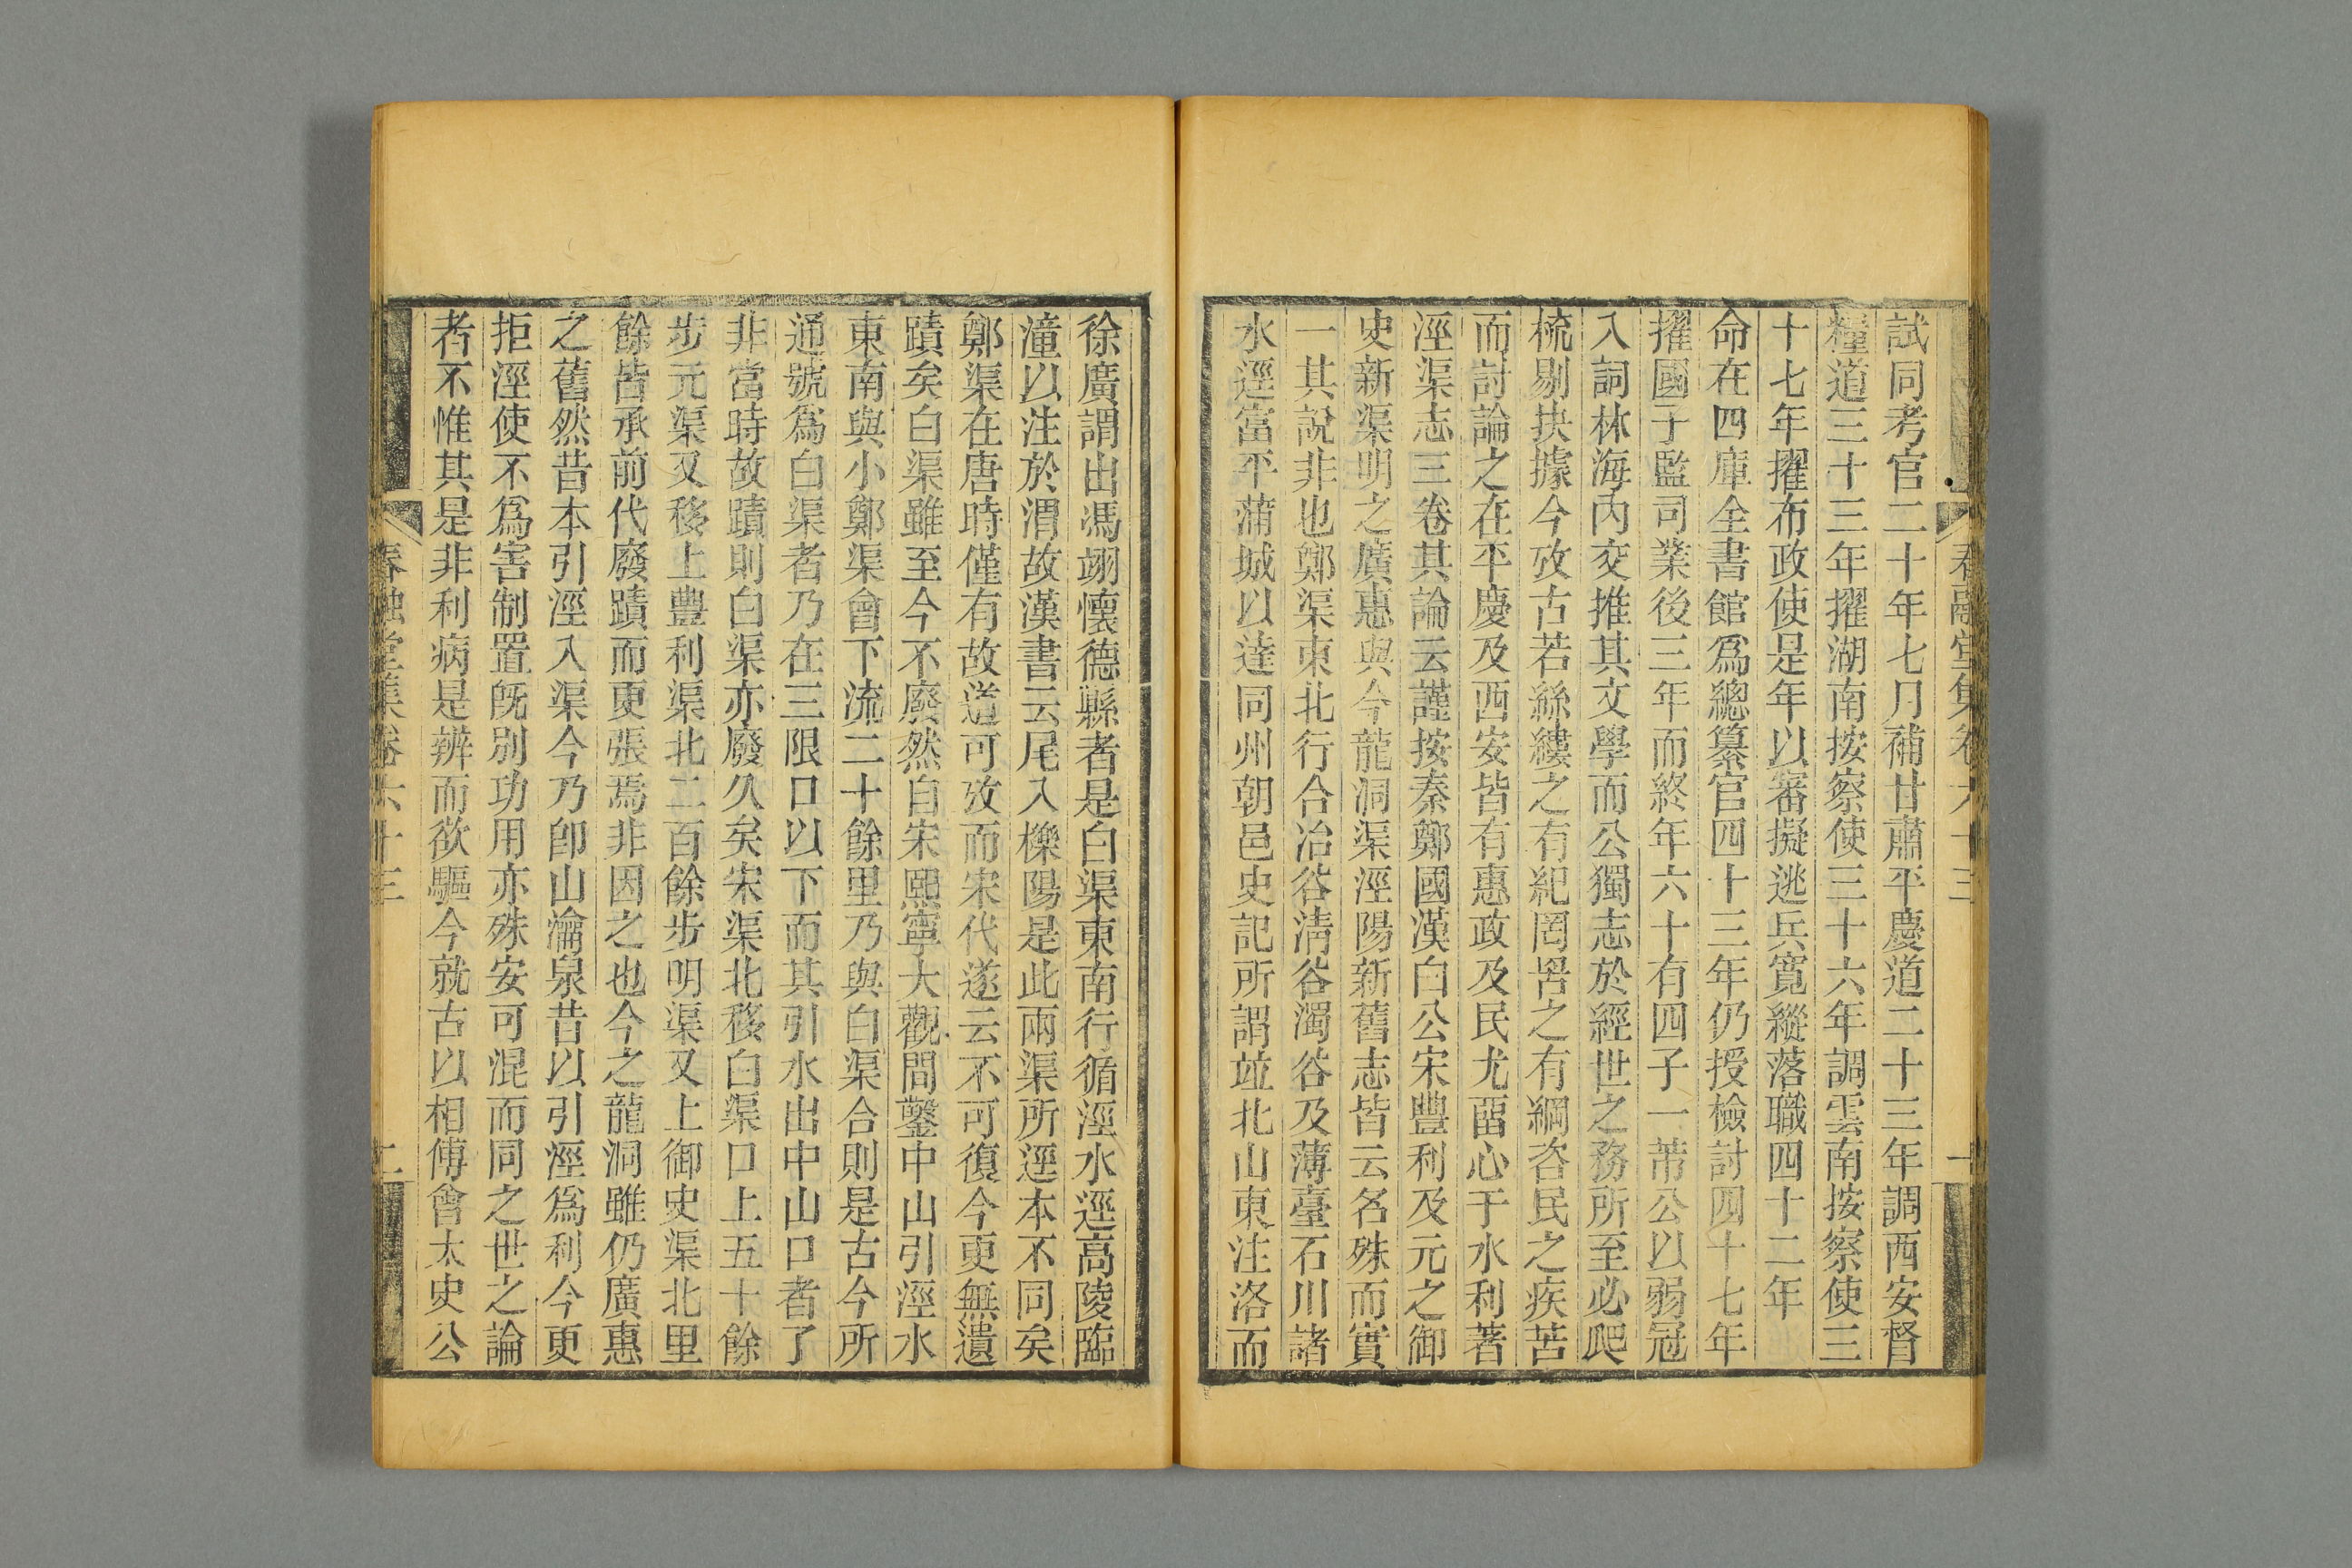 試同考官二十年七月補甘肅平慶道二十三年調西安督
糧道三十三年擢湖南按察使三十六年調雲南按察使三
十七年擢布政使是年以審擬逃兵寬縱落職四十二年
命在四庫全書館爲總纂官四十三年仍授檢討四十七年
擢國子監司業後三年而終年六十有四子一芾公以弱冠
入詞林海內交推其文學而公獨志於經世之務所至必爬
梳剔抉據今攷古若絲縷之有紀罔罟之有綱咨民之疾苦
而討論之在平慶及西安皆有惠政及民尤畱心于水利著
涇渠志三卷其論云謹按秦鄭國漢白公宋豐利及元之御
史新渠明之廣惠與今龍洞渠涇陽新舊志皆云名殊而實
一其說非也鄭渠東北行合冶谷淸谷濁谷及薄臺石川諸
水逕富平蒲城以達同州朝邑史記所謂竝北山東注洛而
春融堂集卷六十三
一
徐廣謂出馮翊懷德縣者是白渠東南行循涇水逕高陵臨
潼以注於渭故漢書云尾入櫟陽是此兩渠所逕本不同矣
鄭渠在唐時僅有故道可攷而宋代遂云不可復今更無遺
蹟矣白渠雖至今不廢然自宋熙寧大觀間鑿中山引涇水
東南與小鄭渠會下流二十餘里乃與白渠合則是古今所
通號爲白渠者乃在三限口以下而其引水出中山口者了
非當時故蹟則白渠亦廢久矣宋渠北移白渠口上五十餘
步元渠又移上豐利渠北二百餘步明渠又上御史渠北里
餘皆承前代廢蹟而更張焉非因之也今之龍洞雖仍廣惠
之舊然昔本引涇入渠今乃卽山瀹泉昔以引涇爲利今更
拒涇使不爲害制置旣別功用亦殊安可混而同之世之論
者不惟其是非利病是辨而欲驅今就古以相傅會太史公
春融堂集卷六十三
二